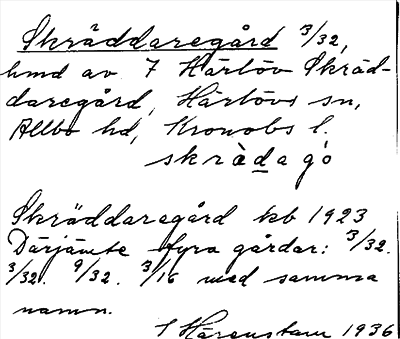 Skräddaregård 3/32,
hmd av 7 Härlöv Skräd-
daregård, Härlövs sn,
Allbo hd, Kronobs l.
skràdagó
Skräddaregård kb 1923
Därjämte fyra gårdar: 3/32.
3/32. 9/32. 3/16 med samma
namn.
I Härenstam 1936